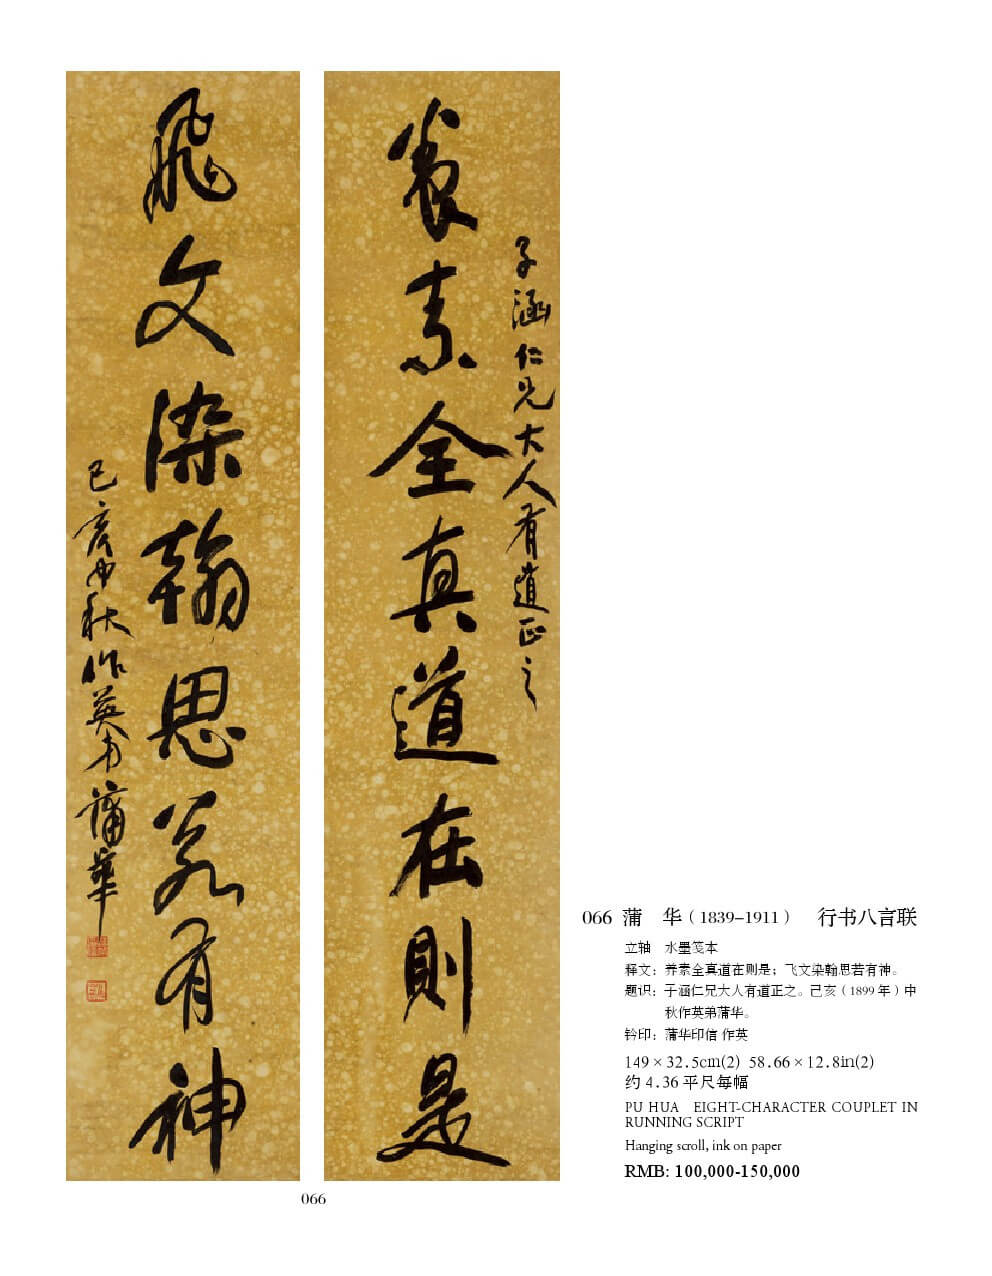 养素全真道在則是
子涵仁兄大人有道正之
飛文染翰思若有神
己亥中秋作英弟蒲華
066 蒲 华（1839-1911） 行书八言联
立轴 水墨笺本
释文：养素全真道在则是；飞文染翰思若有神。
题识：子涵仁兄大人有道正之。己亥（1899 年）中
秋作英弟蒲华。
钤印：蒲华印信 作英
149×32.5cm(2) 58.66×12.8in(2)
约 4.36 平尺每幅
PU HUA EIGHT-CHARACTER COUPLET IN
RUNNING SCRIPT
Hanging scroll, ink on paper
RMB: 100,000-150,000
066